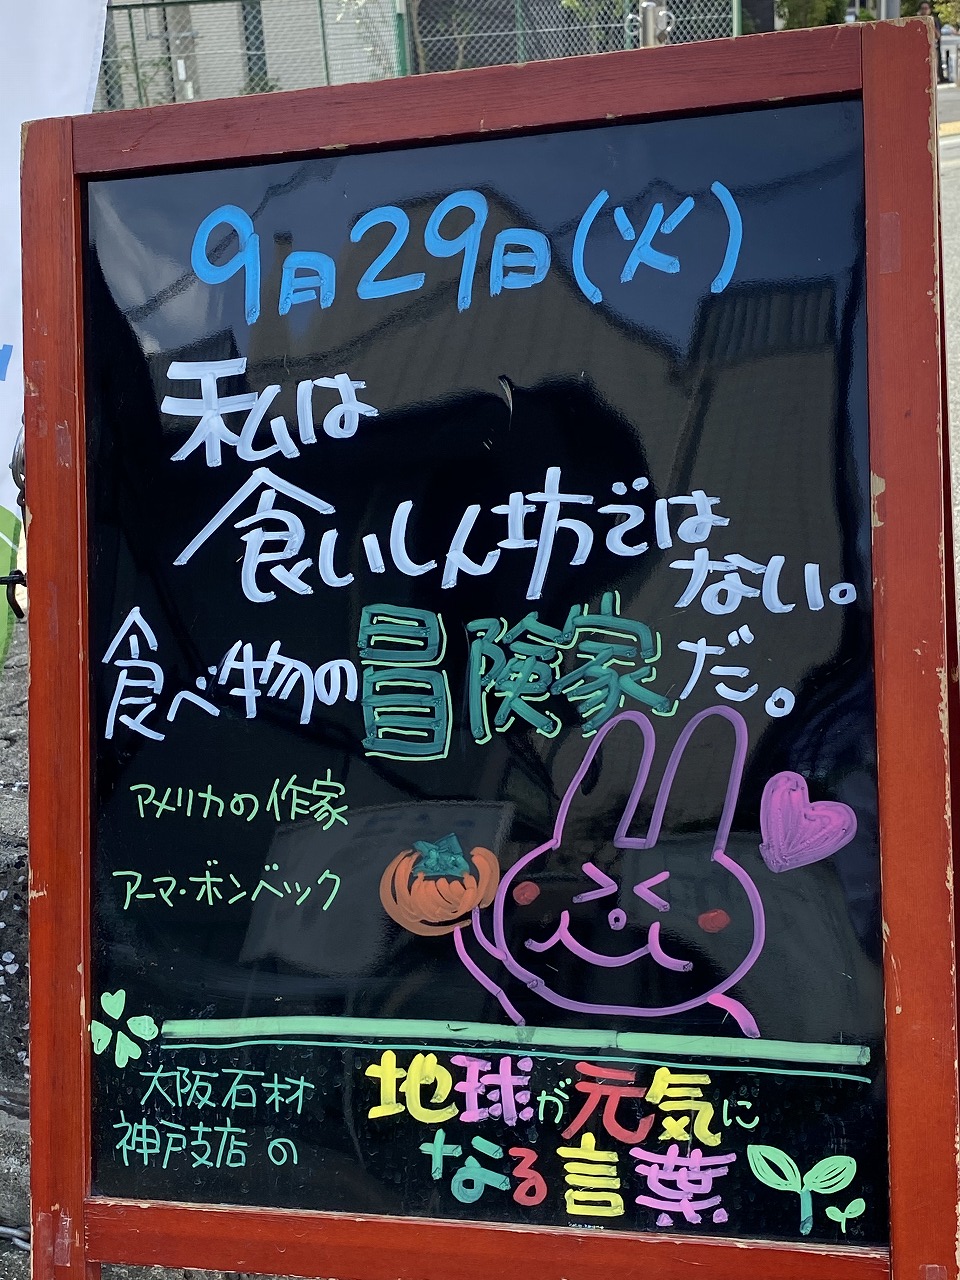 9月29日(火)
私は
食いしん坊では
ない。
食べ物の冒険家だ。
アメリカの作家
アーマ・ボンベック
大阪石材
神戸支店の
地球が元気に
なる言葉